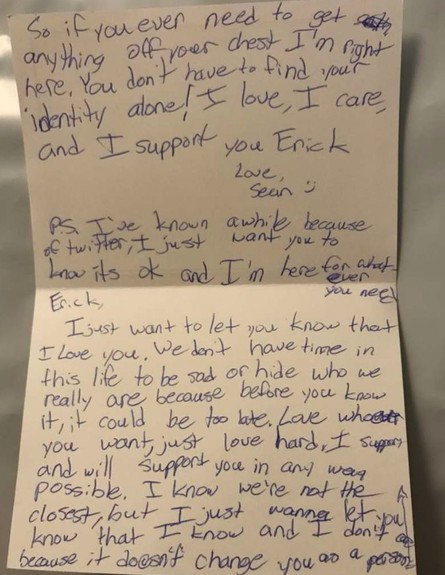 So if you ever need to get
anything off your chest I'm right
here. You don't have to find your
identity alone! I love, I care,
and I support you Erick
Love,
Sean :)
P.S. I've known awhile because
of twitter, I just want you to
know its ok and I'm here for what-
ever
you need
Erick,
I just want to let you know that
I love you. We don't have time in
this life to be sad or hide who we
really are because before you know
it, it could be too late. Love who
you want, just love hard. I support
and will support you in any way
possible. I know we're not the
closest, but I just wanna let you
know that I know and I don't
because it doesn't change you as a person